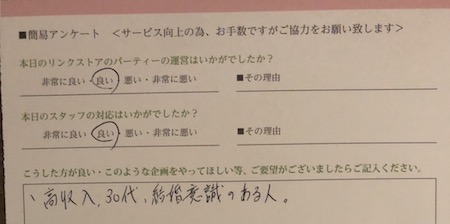 ■簡易アンケート <サービス向上の為、お手数ですがご協力をお願い致します>
本日のリンクストアのパーティーの運営はいかがでしたか?
非常に良い・良い・悪い・非常に悪い ■その理由
本日のスタッフの対応はいかがでしたか?
非常に良い・良い・悪い・非常に悪い ■その理由
こうした方が良い・このような企画をやってほしい等、ご要望がございましたらご記入ください。
、高収入、30代、結婚意識のある人。